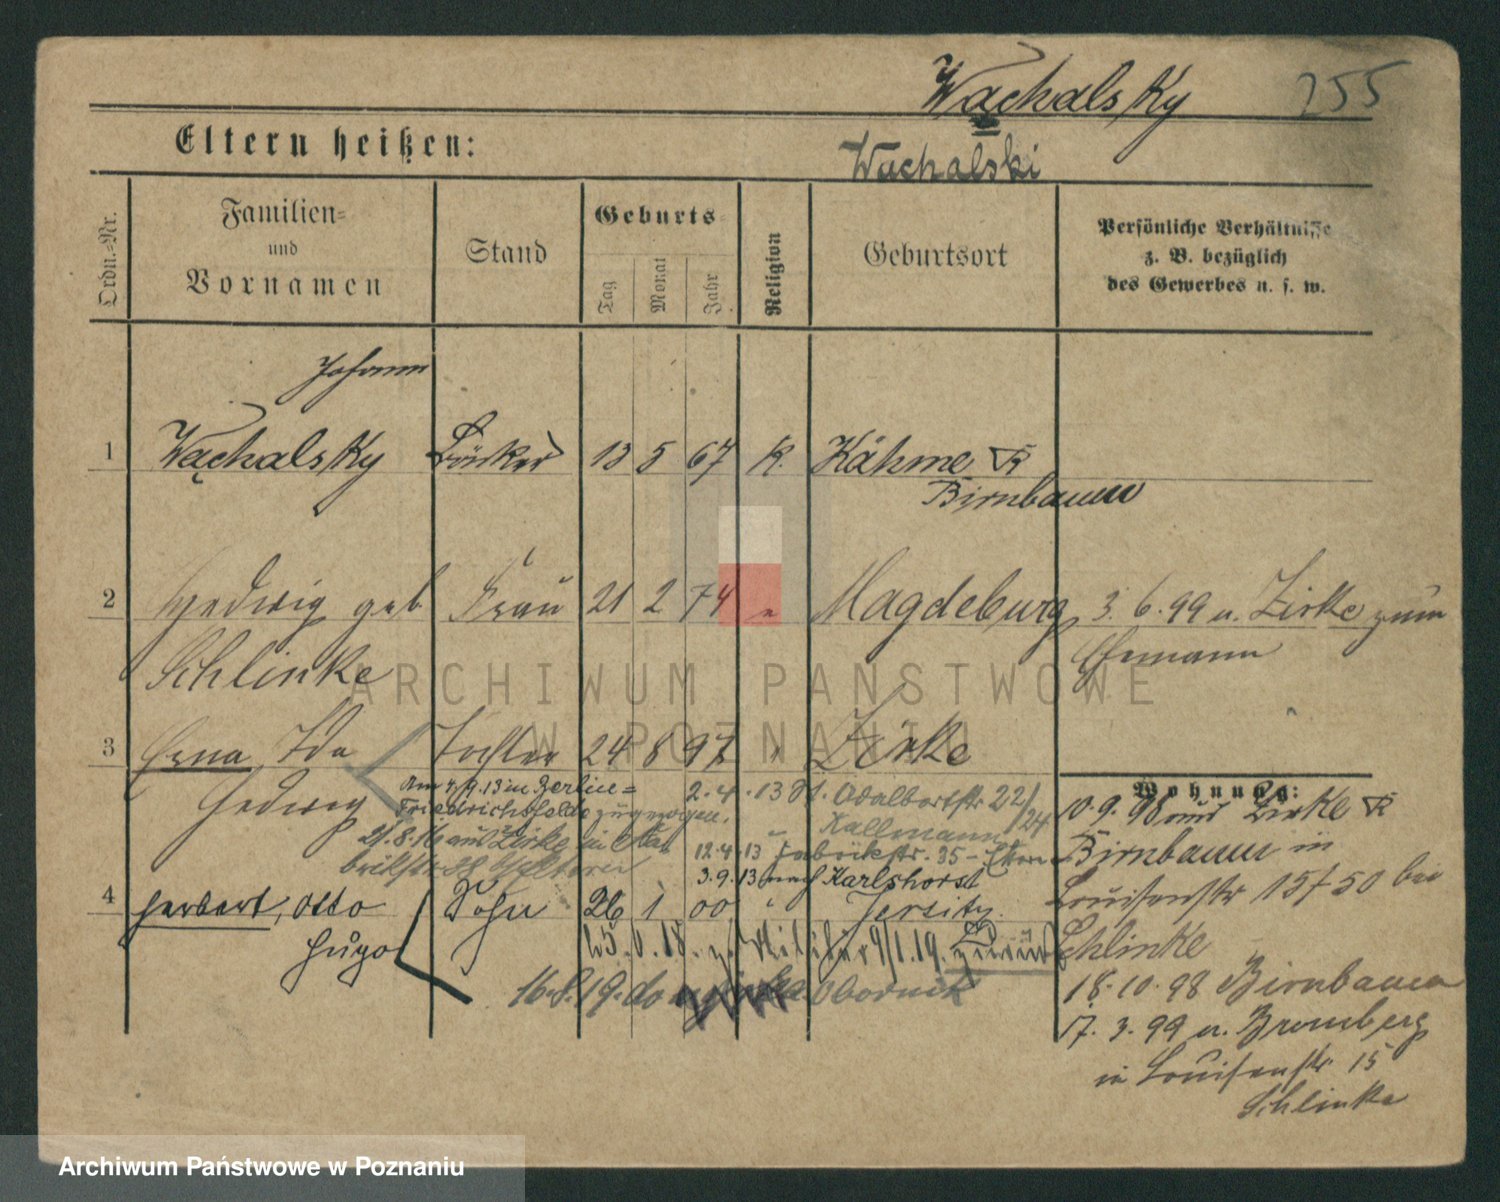 Wachalsky 255
Eltern heißen:
Wachalski
Ordn.-Nr.
Familien-
und
Vornamen
Stand
Geburts-
Tag
Monat
Jahr
Religion
Geburtsort
Persönliche Verhältnisse
z. B. bezüglich
des Gewerbes u. s. w.
Johann
1 Wachalsky 13 5 67 K. Kähme Kr
Birnbaum
2 Hedwig geb Frau 21 2 74 " Magdeburg 3. 6. 99 n. Zirke zum
Schlinke Ehemann
3 Erna Ida Tochter 24 8 97 " Zirke
Hedwig
Am 4/9.13 in Berlin=
Friedrichsfelde zugezogen.
21.8.16 aus Zirke
2.4.13 Adalbertstr 22/24
Kallmann
12.4.13 Fabrikstr. 35 - Eltern
3.9.13 nach Karlshorst
Wohnung:
10.9.98 aus Zirke Kr
Birnbaum in
Louisenstr 15 bei
Schlinke
18.10.98 Birnbaum
17. 3. 99 n. Bromberg
in Louisenstr 15
Schlinke
4 Herbert, Otto Sohn 26 1 00 " Jersitz
Hugo
9/1.19.
16.8.19. do Obornik
ARCHIWUM PAŃSTWOWE
W POZNANIU
Archiwum Państwowe w Poznaniu